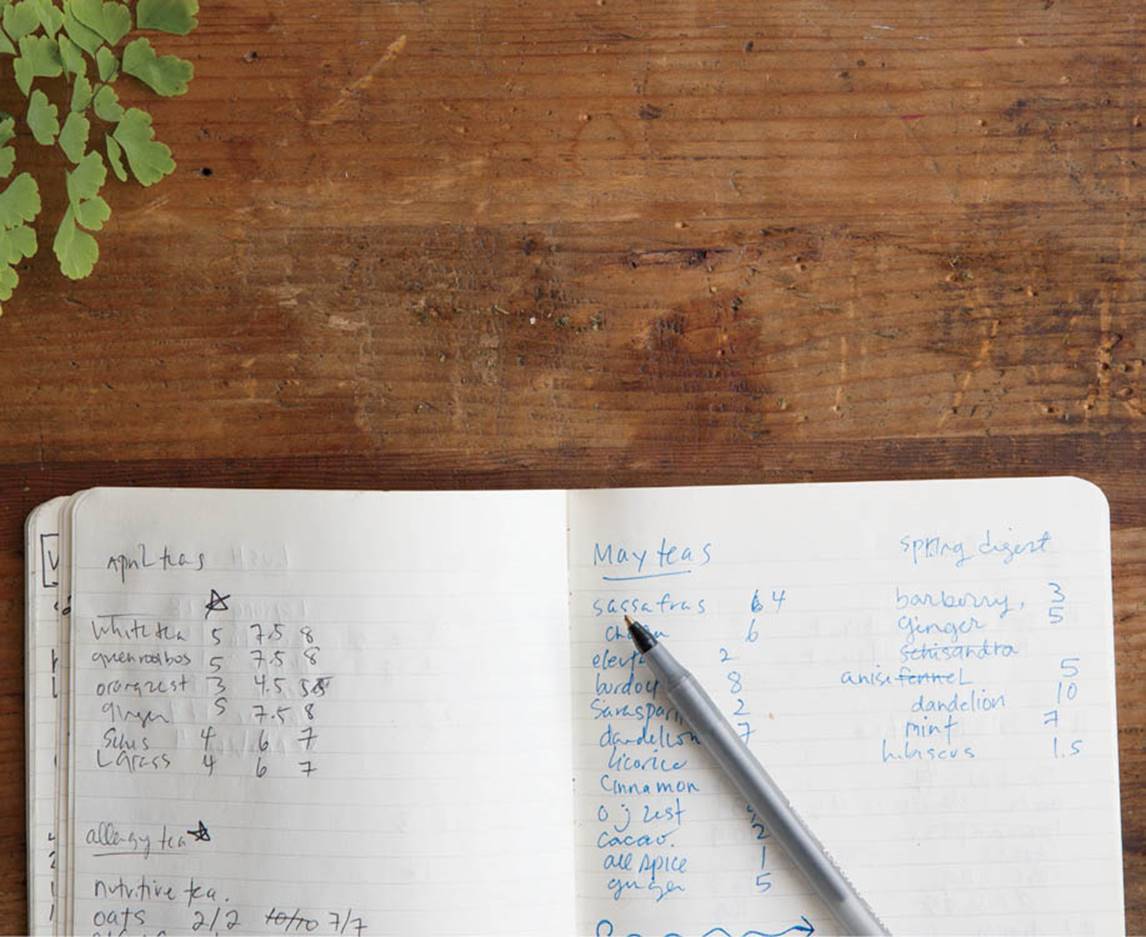 April teas
white tea 5 7.5 8
green rooibos 5 7.5 8
orangzest 3 4.5 5
ginger 5 7.5 8
Schis 4 6 7
Lgrass 4 6 7
allergy tea
nutritive tea.
oats 2/2 10/10 7/7
May teas
sassafras 6 4
6
2
burdoc 8
Sarsapari 2
dandelion 7
licorice
Cinnamon
oj zest
cacao. 2
all spice 1
ginger 5
spring digest
barberry, 3
ginger 5
schisandra
anise fennel 5
dandelion 10
mint 7
hibiscus 1.5